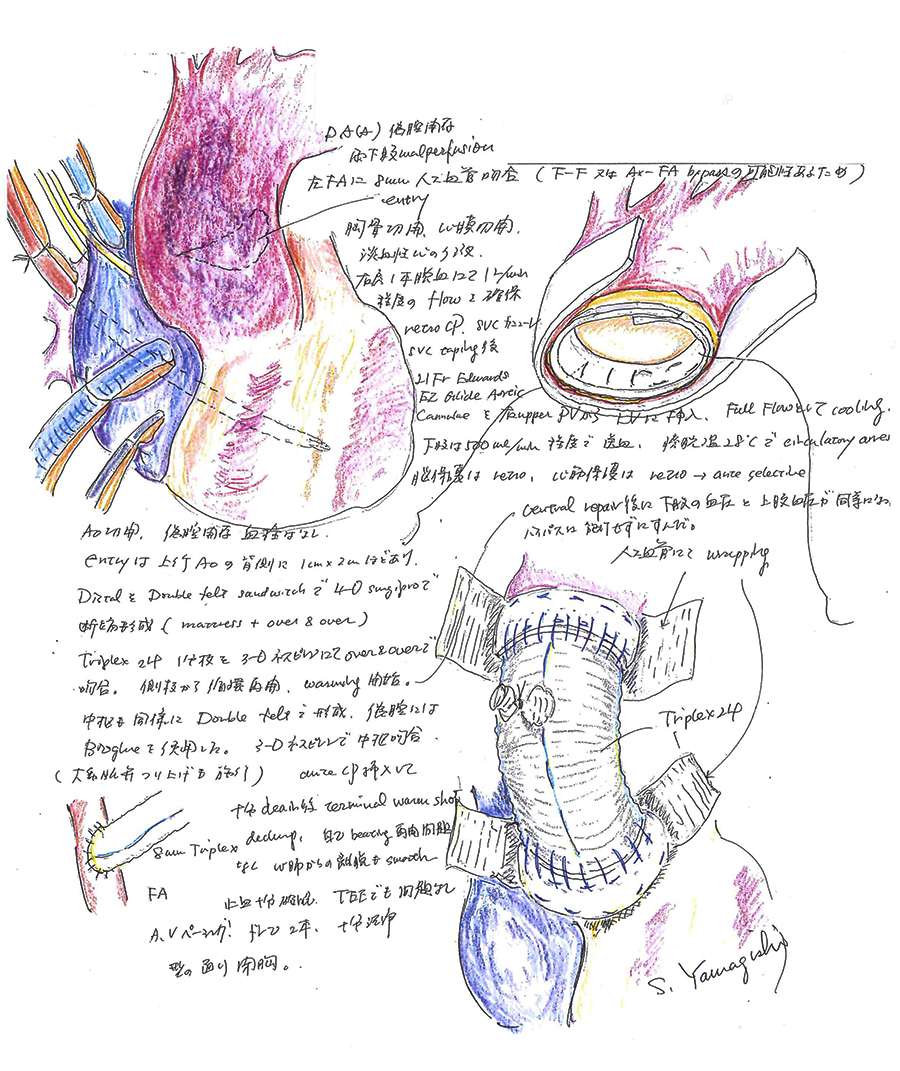 DA(A) 偽腔開存
両下肢malperfusion
左FAに 8mm 人工血管吻合 (F-F 又は Ax-FA bypassの可能性あるため)
entry
胸骨切開、心膜切開、
淡血性心のう液、
右房1本脱血にて 1L/min
程度の flowを確保
retro CP, SVC カニューレ
SVC taping後
21Fr Edwards
EZ Glide Aortic
Cannulaeを R upper PVから LVに挿入、 Full Flowにして cooling.
下肢は500ml/min 程度で送血、 膀胱温28℃で circulatory arrest
脳保護は retro, 心筋保護は retro → ante selective
central repair後に下肢の血圧と上肢血圧が同等になり、
バイパスは施行せずにすんだ。
人工血管にて wrapping
Ao切開、偽腔開存 血栓はなし.
entryは上行Aoの背側に 1cm×2cmほどあり.
Distalを Double felt sandwitchで 4-0 surgiproで
断端形成 (mattress + over & over)
Triplex 24 1分枝を 3-0 ネスピレンにて over & overで
吻合。側枝から循環再開、warming 開始。
中枢も同様に Double feltで形成、偽腔には
Bioglueを使用した。 3-0 ネスピレンで中枢吻合.
(大動脈弁つり上げも施行) ante CP 挿入にて
十分 deair後 terminal warm shot
declamp, 自己 beating 再開 問題
なく 心肺からの離脱も smooth
止血十分確認. TEEでも問題なし
A,Vペーシング, ドレーン2本、十分洗浄
型の通り閉胸。
Triplex 24
8mm Triplex
FA
S. Yamagishi